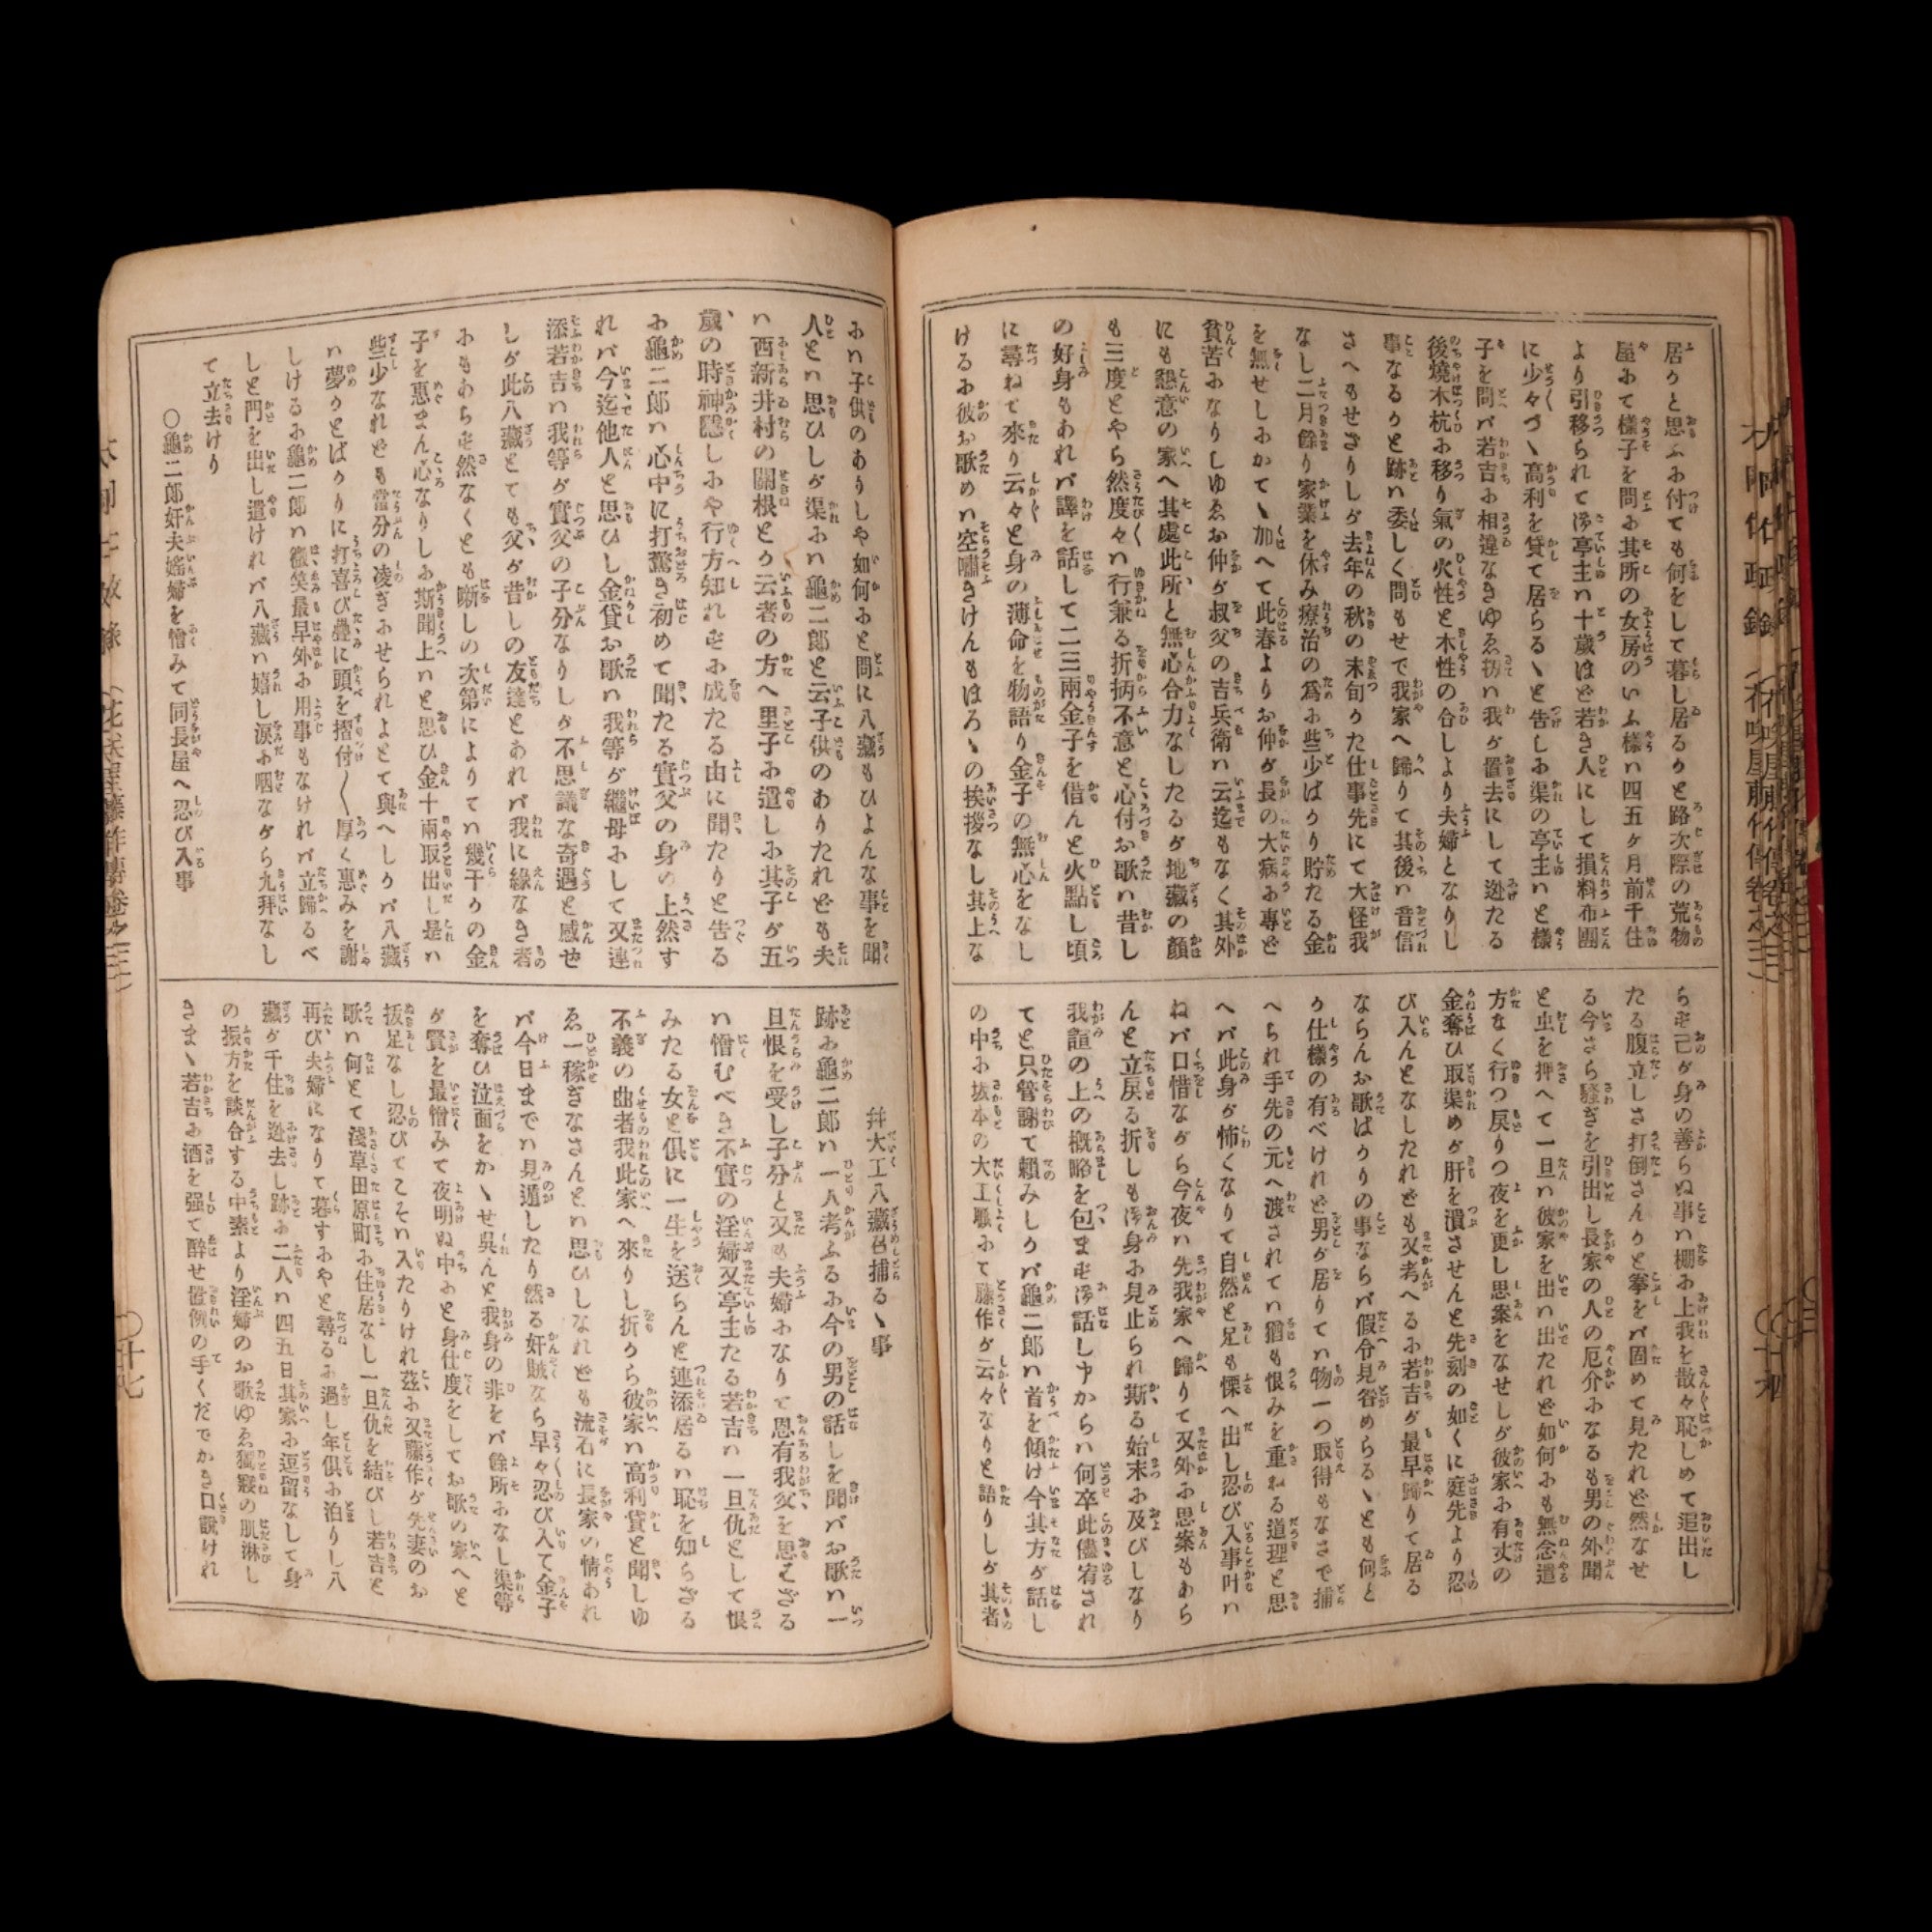 居るかと思ふに付ても何をして暮し居るかと路次際の荒物
屋にて樣子を問に其所の女房のいふ樣ハ四五ヶ月前千住
より引移られて御亭主ハ十歳ほど若き人にして損料布團
に少々づゝ高利を貸て居らるゝと告しに渠の亭主ハと樣
子を問バ若吉に相違なきゆゑ扨ハ我が置去にして逊たる
後燒木杭に移り氣の火性と木性の合しより夫婦となりし
事なるかと跡ハ委しく問もせで我家へ歸りて其後ハ音信
さへもせざりしが去年の秋の末旬かた仕事先にて大怪我
なし二月餘り家業を休み療治の爲に些少ばかり貯たる金
を無せしにかてゝ加へて此春よりお仲が長の大病に專ど
貧苦になりしゆゑお仲が叔父の吉兵衛ハ云迄もなく其外
にも懇意の家へ其處此所と無心合力なしたるが地藏の顏
も三度とやら然度々ハ行兼る折柄不意と心付お歌ハ昔し
の好身もあれバ譯を話して二三兩金子を借んと火點し頃
に尋ねて來り云々と身の薄命を物語り金子の無心をなし
けるに彼お歌めハ空嘯きけんもほろゝの挨拶なし其上な
らず己が身の善らぬ事ハ棚に上我を散々恥しめて追出し
たる腹立しさ打倒さんかと拳をバ固めて見たれど然なせ
る今さら騷ぎを引出し長家の人の厄介になるも男の外聞
と虫を押へて一旦ハ彼家を出ハ出たれど如何にも無念遣
方なく行つ戻りつ夜を更し思案をなせしが彼家に有丈の
金奪ひ取渠めが肝を潰させんと先刻の如くに庭先より忍
び入んとなしたれども又考へるに若吉が最早歸りて居る
ならんお歌ばかりの事ならバ假令見咎めらるゝとも何と
か仕樣の有べけれど男が居りてハ物一つ取得もなさで捕
へられ手先の元へ渡されてハ猶も恨みを重ねる道理と思
へバ此身が怖くなりて自然と足も慄へ出し忍び入事叶ハ
ねバ口惜ながら今夜ハ先我家へ歸りて又外に思案もあら
んと立戻る折しも御身に見止られ斯る始末に及びしなり
我誼の上の概略を包まず御話し申からハ何卒此儘宥され
てと只管謝て賴みしかバ龜二郎ハ首を傾け今其方が話し
の中に坂本の大工職にて藤作が云々なりと語りしが其者
にハ子供のありしや如何にと問に八藏もひよんな事を聞
人とハ思ひしが渠にハ龜二郎と云子供のありたれども夫
ハ西新井村の關根とか云者の方へ里子に遣しに其子が五
歳の時神隱しにや行方知れずに成たる由に聞たりと告る
に龜二郎ハ心中に打驚き初めて聞たる實父の身の上然す
れバ今迄他人と思ひし金貸お歌ハ我等が繼母にして又連
添若吉ハ我等が實父の子分なりしが不思議な奇遇と感せ
しが此八藏とても父が昔しの友達とあれバ我に緣なき者
にもあらず然なくとも噺しの次第によりてハ幾干かの金
子を惠まん心なりしに斯聞上ハと思ひ金十兩取出し是ハ
些少なれども當分の凌ぎにせられよとて與へしかバ八藏
ハ夢かとばかりに打喜び疊に頭を摺付〱厚く惠みを謝
しけるに龜二郎ハ微笑最早外に用事もなけれバ立歸るべ
しと門を出し遣けれバ八藏ハ嬉し涙に咽ながら九拜なし
て立去けり
○龜二郎奸夫婬婦を憎みて同長屋へ忍び入事
幷大工八藏召捕るゝ事
跡に龜二郎ハ一人考ふるに今の男の話しを聞バお歌ハ一
旦恨を受し子分と又も夫婦になりて恩有我父を思ハざる
ハ憎むべき不實の淫婦又亭主たる若吉ハ一旦仇として恨
みたる女と俱に一生を送らんと連添居るハ恥を知らざる
不義の曲者我此家へ來りし折から彼家ハ高利貸と聞しゆ
ゑ一稼ぎなさんとハ思ひしなれども流石に長家の情あれ
バ今日までハ見遁したり然る奸賊なら早々忍び入て金子
を奪ひ泣面をかゝせ呉んと我身の非をバ餘所になし渠等
が賢を最憎みて夜明ぬ中にと身仕度をしてお歌の家へと
拔足なし忍びてこそハ入たりけれ茲に又藤作が先妻のお
歌ハ何とて淺草田原町に住居なし一旦仇を結びし若吉と
再び夫婦になりて暮すにやと尋るに過し年俱に泊りし八
藏が千住を逊去し跡に二人ハ四五日其家に逗留なして身
の振方を談合する中素より淫婦のお歌ゆゑ獨寢の肌淋し
きまゝ若吉に酒を强て醉せ置例の手くだでかき口說けれ